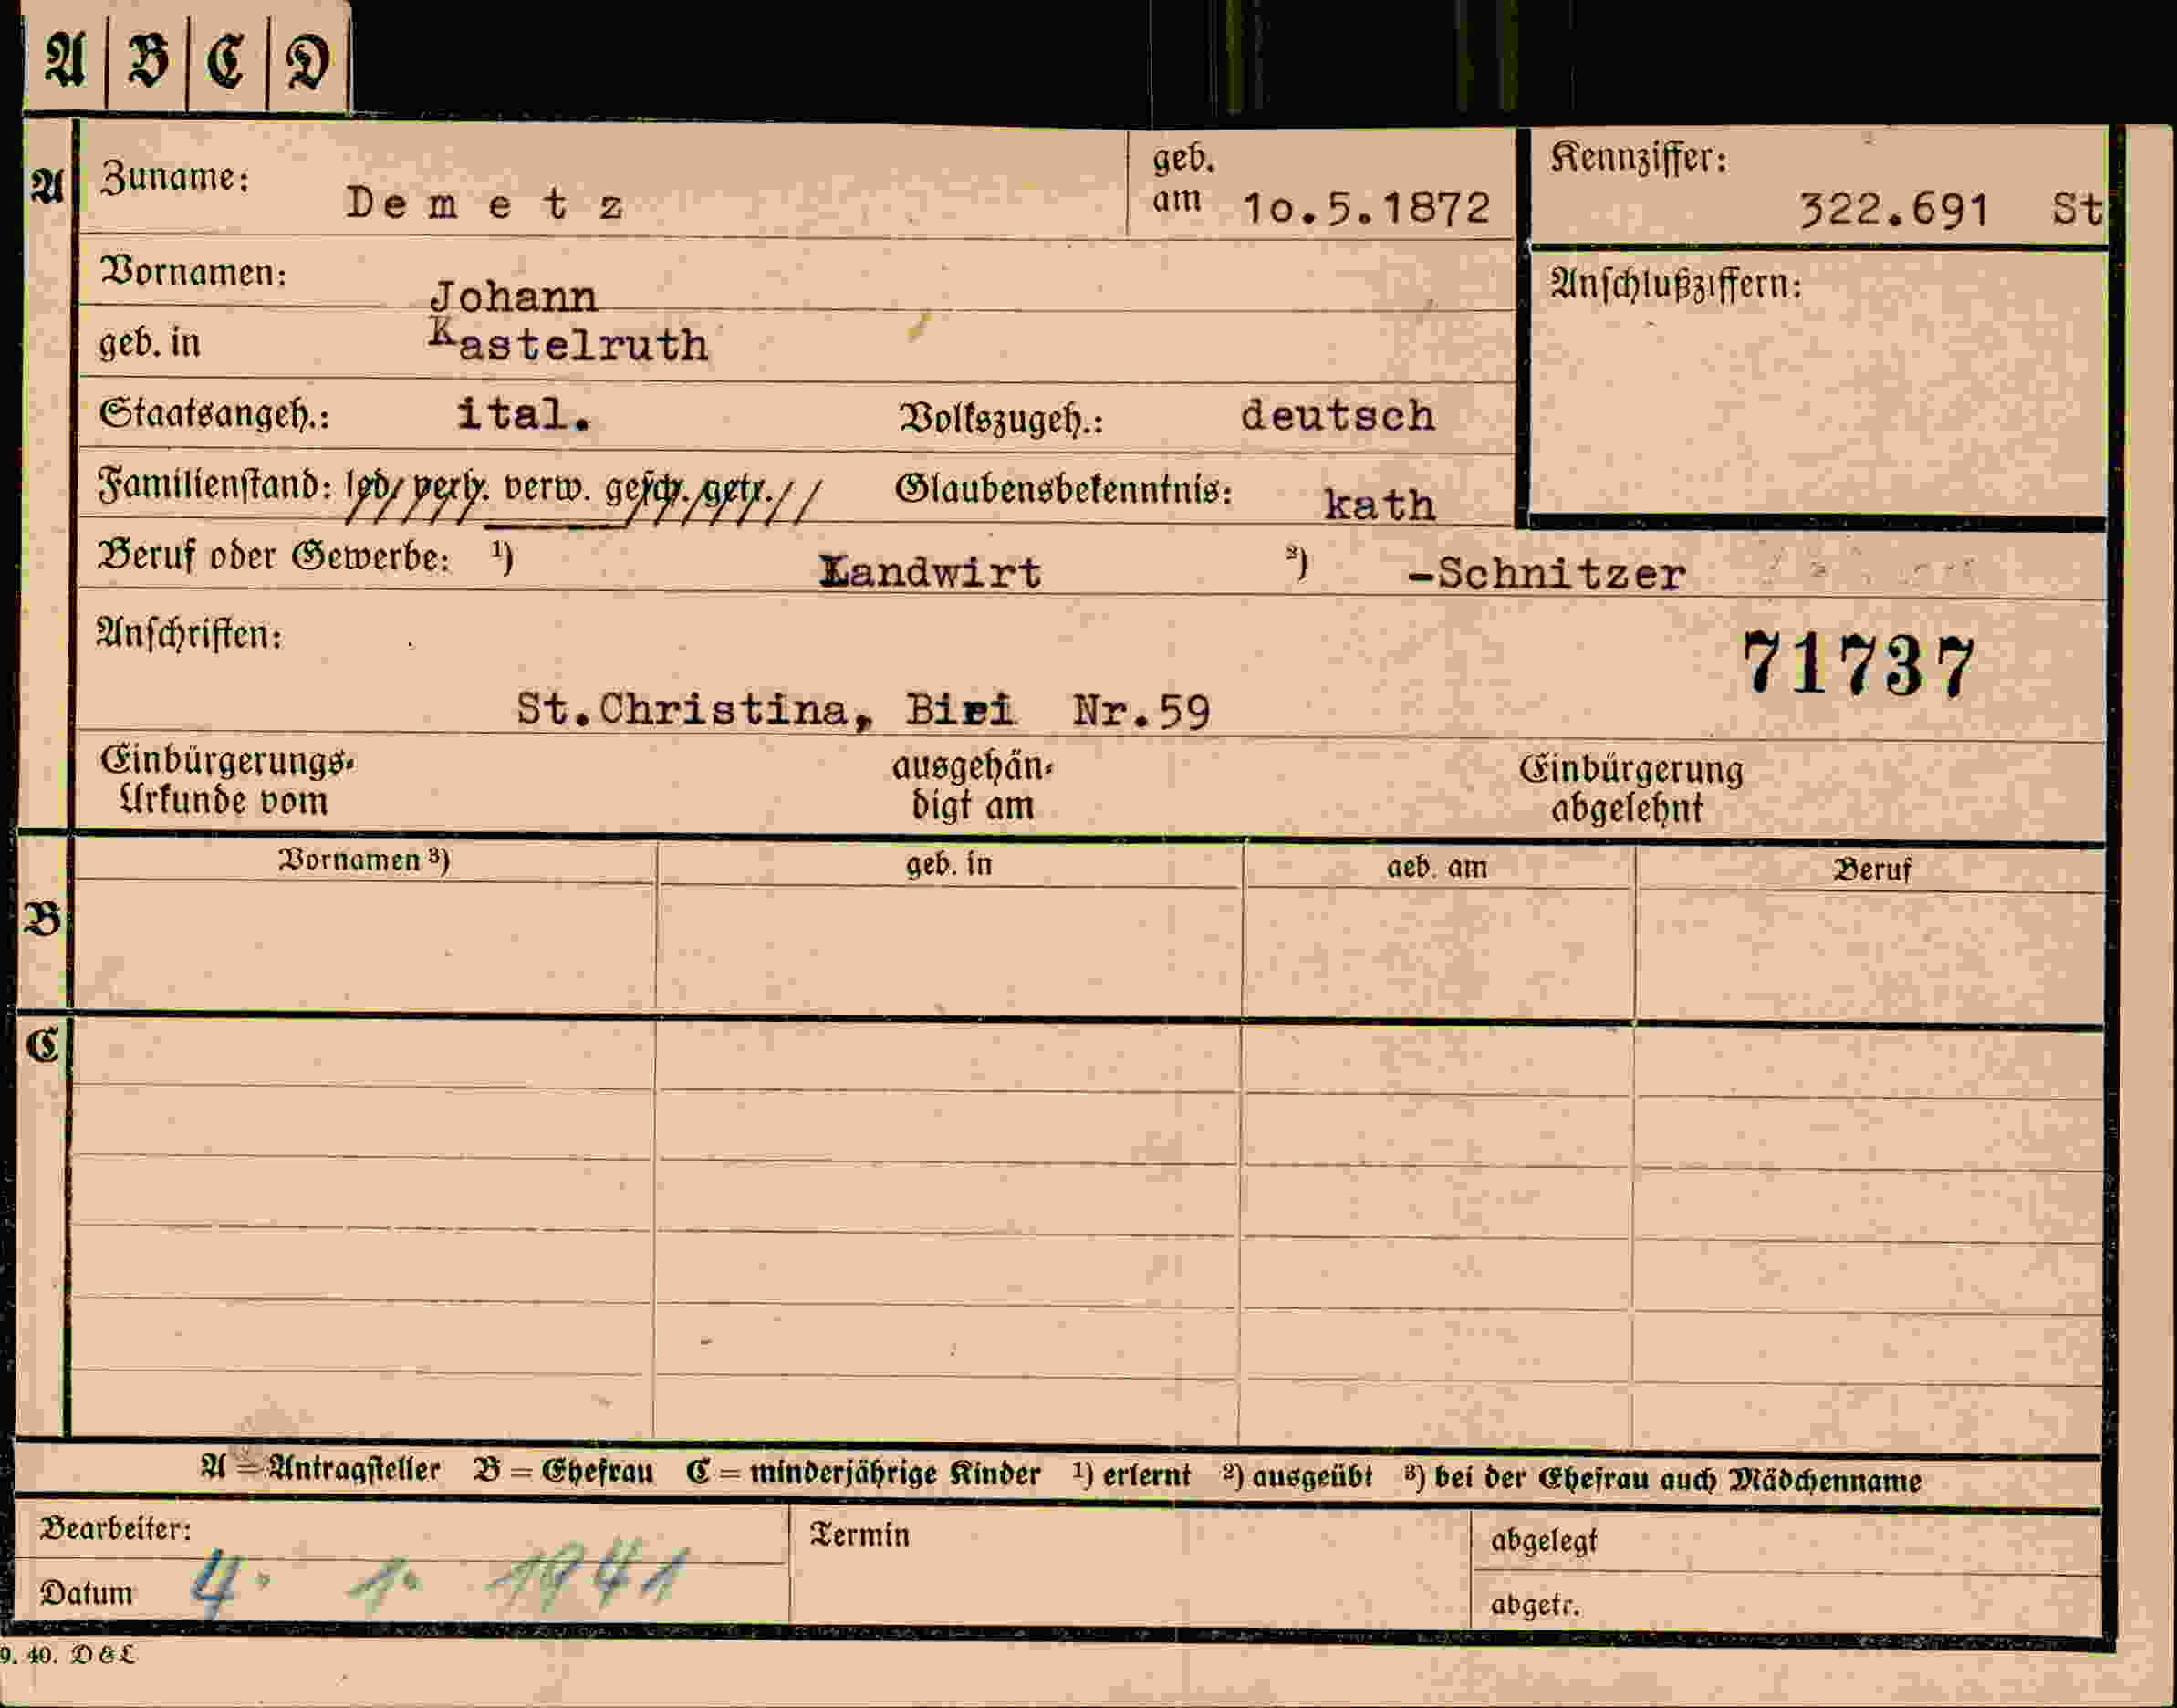 A B C D
A Zuname: Demetz geb. am 10.5.1872 Kennziffer: 322.691 St
Vornamen: Johann Anschlußziffern:
geb. in Kastelruth
Staatsangeh.: ital. Volkszugeh.: deutsch
Familienstand: led. verh. verw. gesch. getr. Glaubensbekenntnis: kath
Beruf oder Gewerbe: ¹) Landwirt ²) -Schnitzer
Anschriften: 71737
St.Christina, Nr.59
Einbürgerungs- ausgehän- Einbürgerung
Urkunde vom digt am abgelehnt
Vornamen ³) geb. in geb. am Beruf
B
C
A = Antragsteller B = Ehefrau C = minderjährige Kinder ¹) erlernt ²) ausgeübt ³) bei der Ehefrau auch Mädchenname
Bearbeiter: Termin abgelegt
Datum 4. 1. 1941 abgetr.
9. 40. D & L